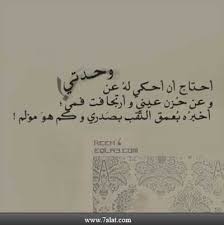 وحدتي!
أحتاج أن أحكي له عن
و عن حزن عيني و أرتجافت فمي؛
أخبره بعمق الثقب بصدري و كم هو مؤلم !
REEM &
EQLA3.COM
www.7alat.com